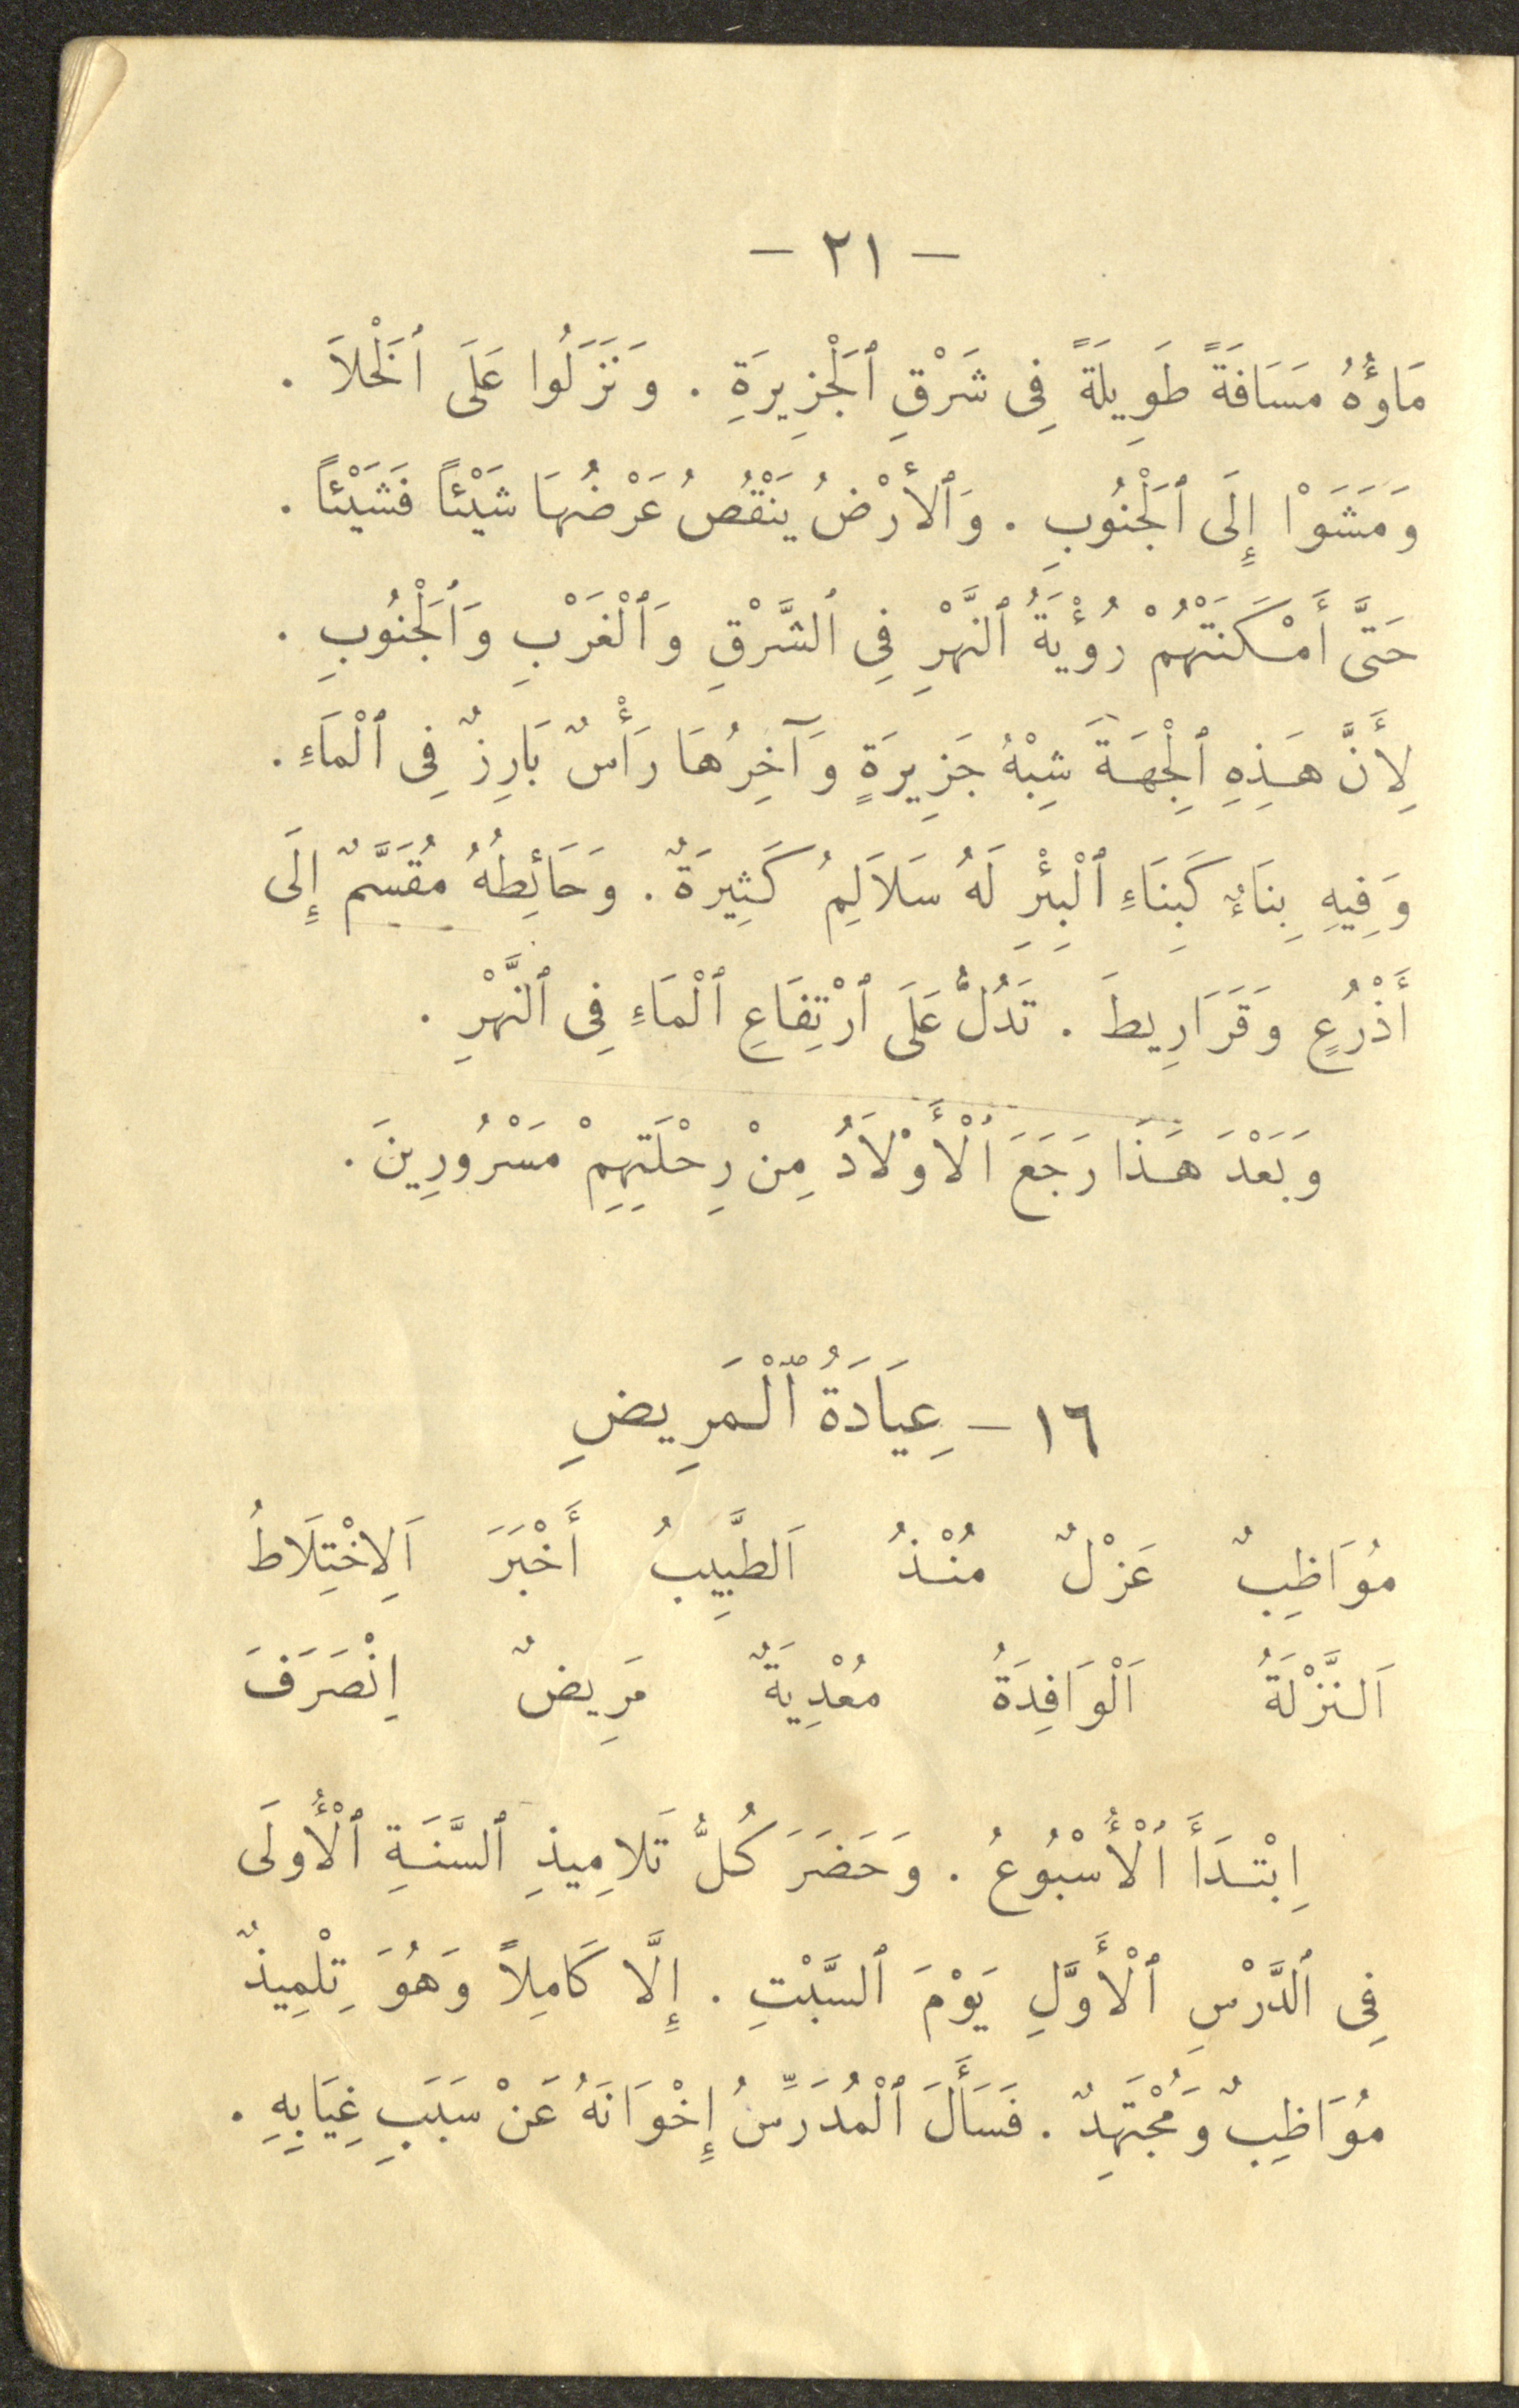 — ٢١ —
مَاؤُهُ مَسَافَةً طَوِيلَةً فِى شَرْقِ ٱلْجَزِيرَةِ . وَنَزَلُوا عَلَى ٱلْخَلَا .
وَمَشَوْا إِلَى ٱلْجَنُوبِ . وَٱلأَرْضُ يَنْقُصُ عَرْضُهَا شَيْئًا فَشَيْئًا .
حَتَّى أَمْكَنَتْهُمْ رُؤْيَةُ ٱلنَّهْرِ فِى ٱلشَّرْقِ وَٱلْغَرْبِ وَٱلْجَنُوبِ .
لِأَنَّ هَذِهِ ٱلْجِهَةَ شِبْهُ جَزِيرَةٍ وَآخِرُهَا رَأْسٌ بَارِزٌ فِى ٱلْمَاءِ .
وَفِيهِ بِنَاءٌ كَبِنَاءِ ٱلْبِئْرِ لَهُ سَلَالِمُ كَثِيرَةٌ . وَحَائِطُهُ مُقَسَّمٌ إِلَى
أَذْرُعٍ وَقَرَارِيطَ . تَدُلُّ عَلَى ٱرْتِفَاعِ ٱلْمَاءِ فِى ٱلنَّهْرِ .
وَبَعْدَ هَذَا رَجَعَ ٱلْأَوْلَادُ مِنْ رِحْلَتِهِمْ مَسْرُورِينَ .
١٦ — عِيَادَةُ ٱلْمَرِيضِ
مُوَاظِبٌ عَزْلٌ مُنْذُ اَلطَّبِيبُ أَخْبَرَ اَلِاخْتِلَاطُ
اَلنَّزْلَةُ اَلْوَافِدَةُ مُعْدِيَةٌ مَرِيضٌ اِنْصَرَفَ
اِبْتَدَأَ ٱلْأُسْبُوعُ . وَحَضَرَ كُلُّ تَلَامِيذِ ٱلسَّنَةِ ٱلْأُولَى
فِى ٱلدَّرْسِ ٱلْأَوَّلِ يَوْمَ ٱلسَّبْتِ . إِلَّا كَامِلاً وَهُوَ تِلْمِيذٌ
مُوَاظِبٌ وَمُجْتَهِدٌ . فَسَأَلَ ٱلْمُدَرِّسُ إِخْوَانَهُ عَنْ سَبَبِ غِيَابِهِ .